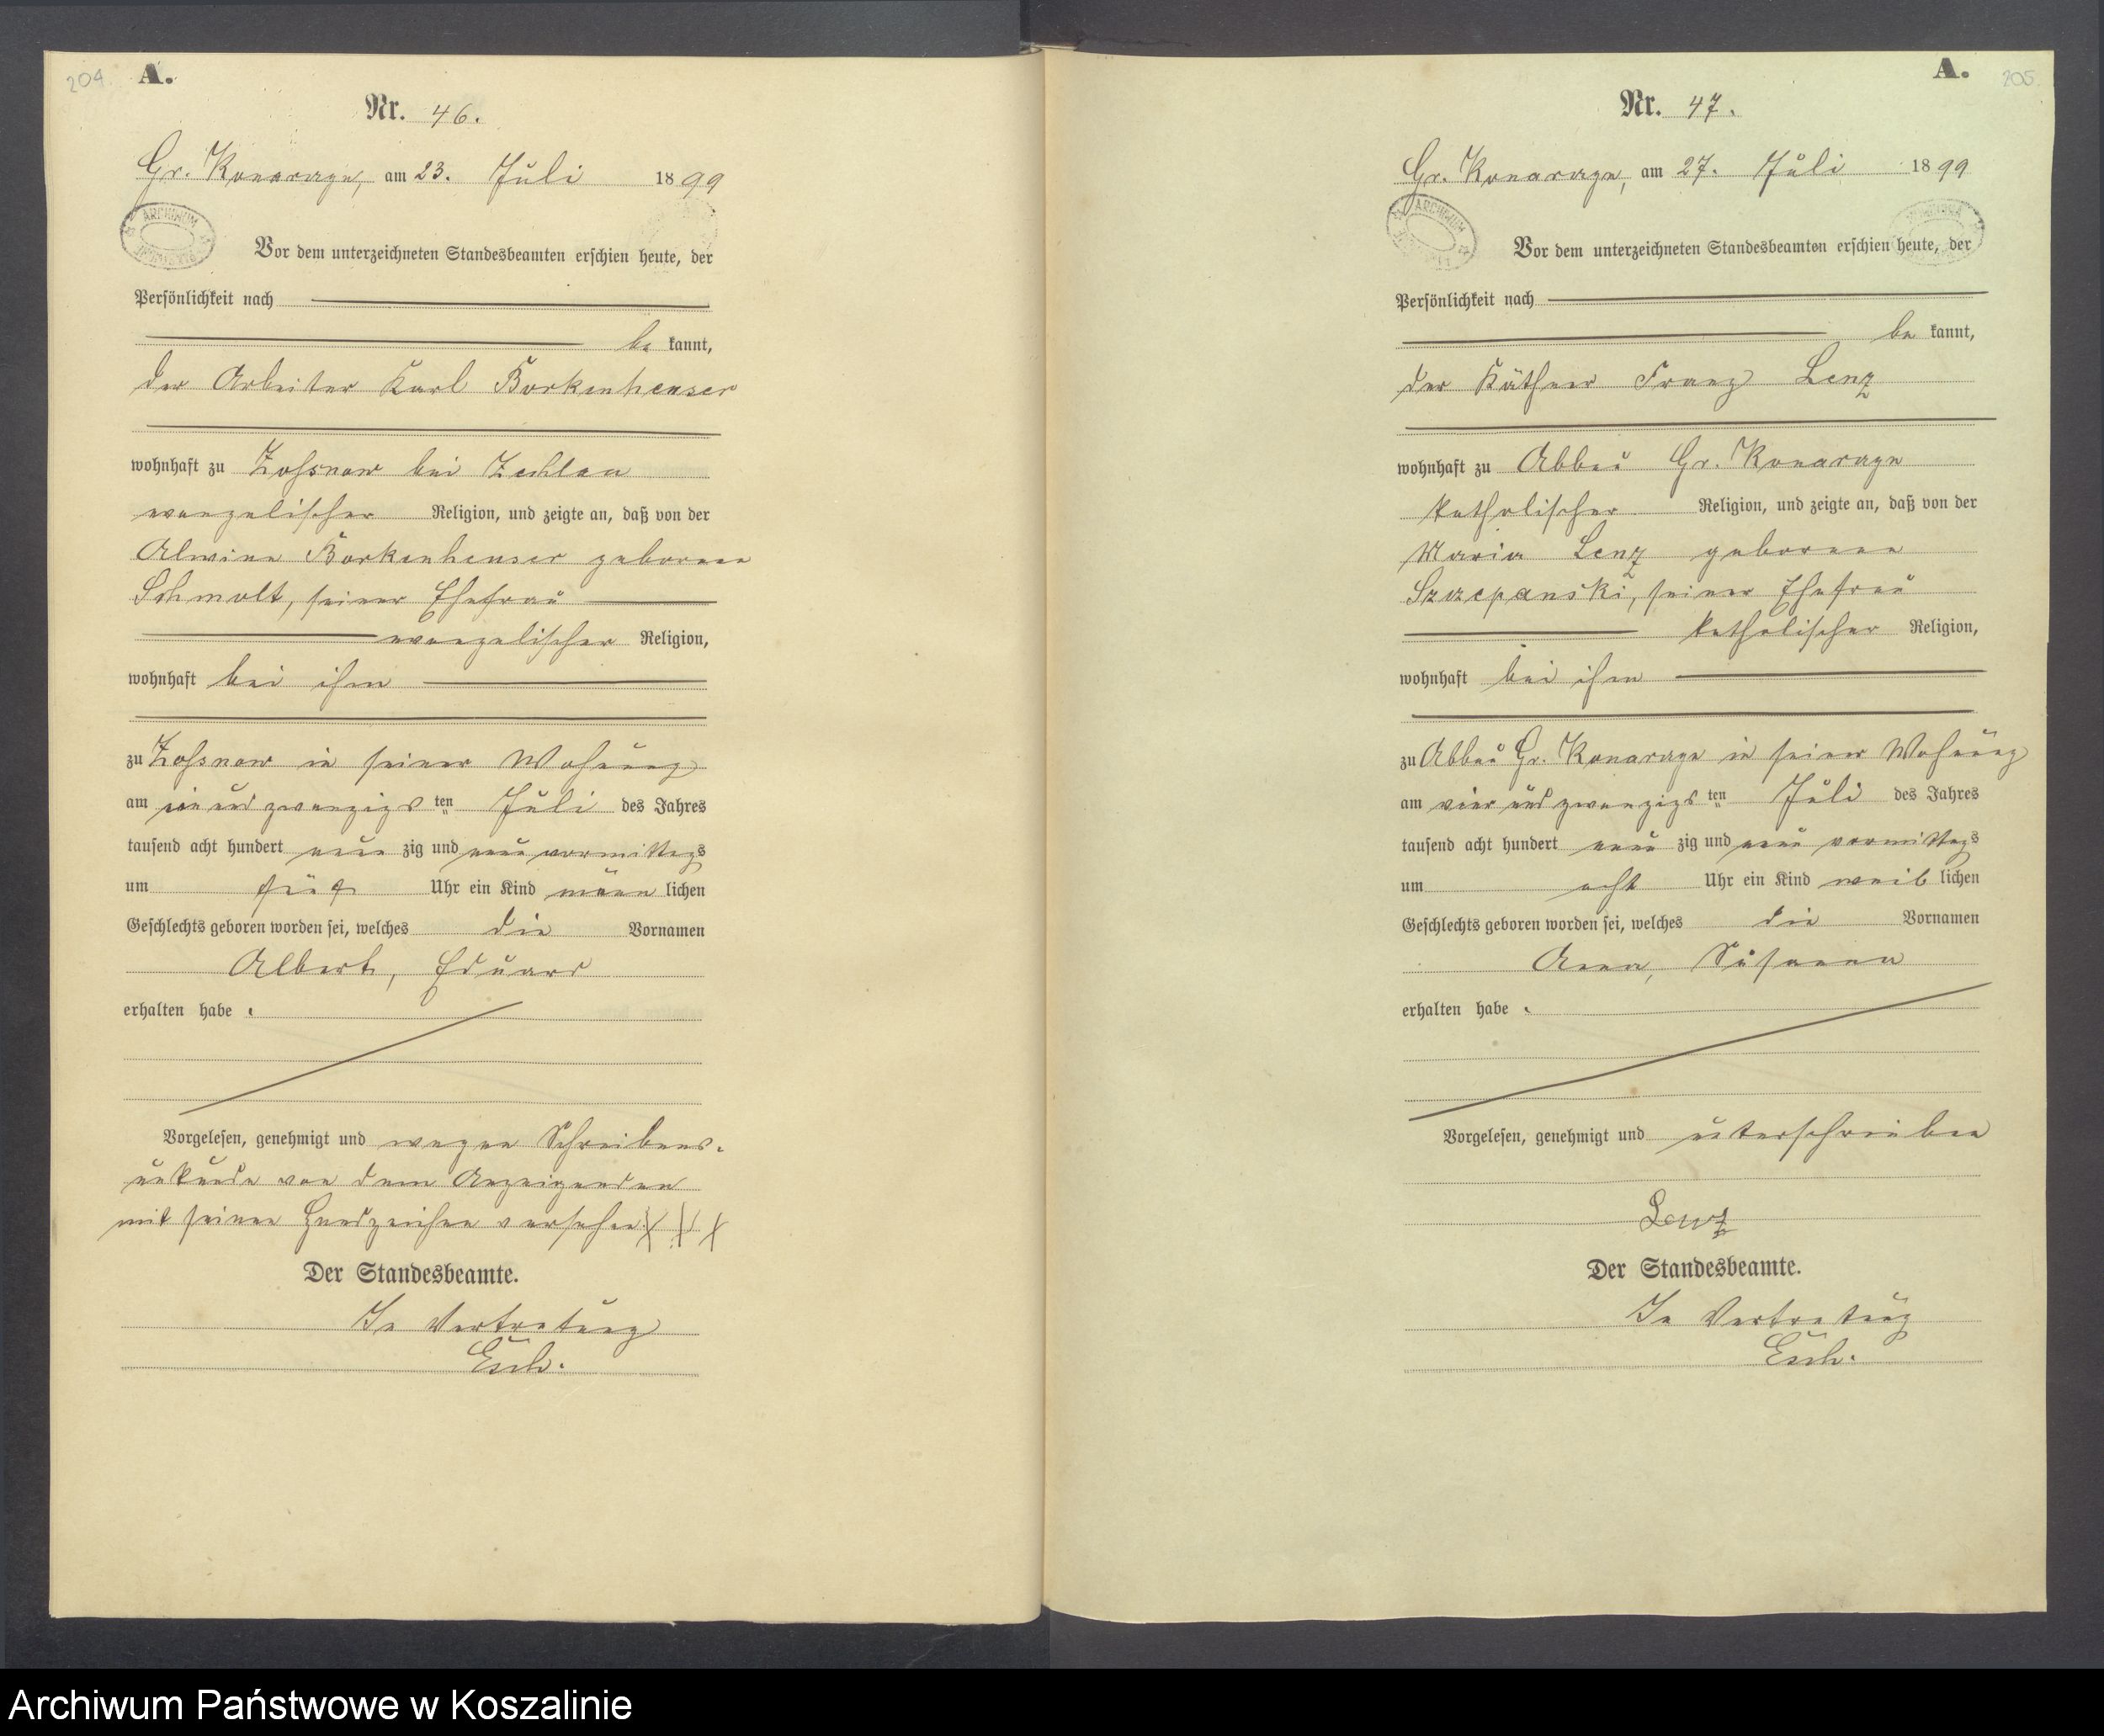 204.
A.
Nr. 46.
Gr. Konarzyn, am 23. Juli 1899
ARCHIWUM
Vor dem unterzeichneten Standesbeamten erschien heute, der
Persönlichkeit nach
be kannt,
der Arbeiter Karl Borkenheuser
wohnhaft zu bei
evangelischer Religion, und zeigte an, daß von der
Alwine Borkenheuser geborene
Schmolt, seiner Ehefrau
evangelischer Religion,
wohnhaft bei ihm
zu in seiner Wohnung
am ein und zwanzigsten Juli des Jahres
tausend acht hundert neun zig und neun vormittags
um fünf Uhr ein Kind männ lichen
Geschlechts geboren worden sei, welches die Vornamen
Albert, Eduard
erhalten habe.
Vorgelesen, genehmigt und wegen Schreibens-
unkunde von dem Anzeigenden
mit seinen Handzeichen versehen XXX
Der Standesbeamte.
In Vertretung
Esch.
A.
205.
Nr. 47.
Gr. Konarzyn, am 27. Juli 1899
ARCHIWUM
Vor dem unterzeichneten Standesbeamten erschien heute, der
Persönlichkeit nach
be kannt,
der Käthner Franz Lenz
wohnhaft zu Abbau Gr. Konarzyn
katholischer Religion, und zeigte an, daß von der
Maria Lenz geborene
Szczepanski, seiner Ehefrau
katholischer Religion,
wohnhaft bei ihm
zu Abbau Gr. Konarzyn in seiner Wohnung
am vier und zwanzigsten Juli des Jahres
tausend acht hundert neun zig und neun vormittags
um acht Uhr ein Kind weib lichen
Geschlechts geboren worden sei, welches die Vornamen
Anna, Susanna
erhalten habe.
Vorgelesen, genehmigt und unterschrieben
Lenz
Der Standesbeamte.
In Vertretung
Esch.
Archiwum Państwowe w Koszalinie